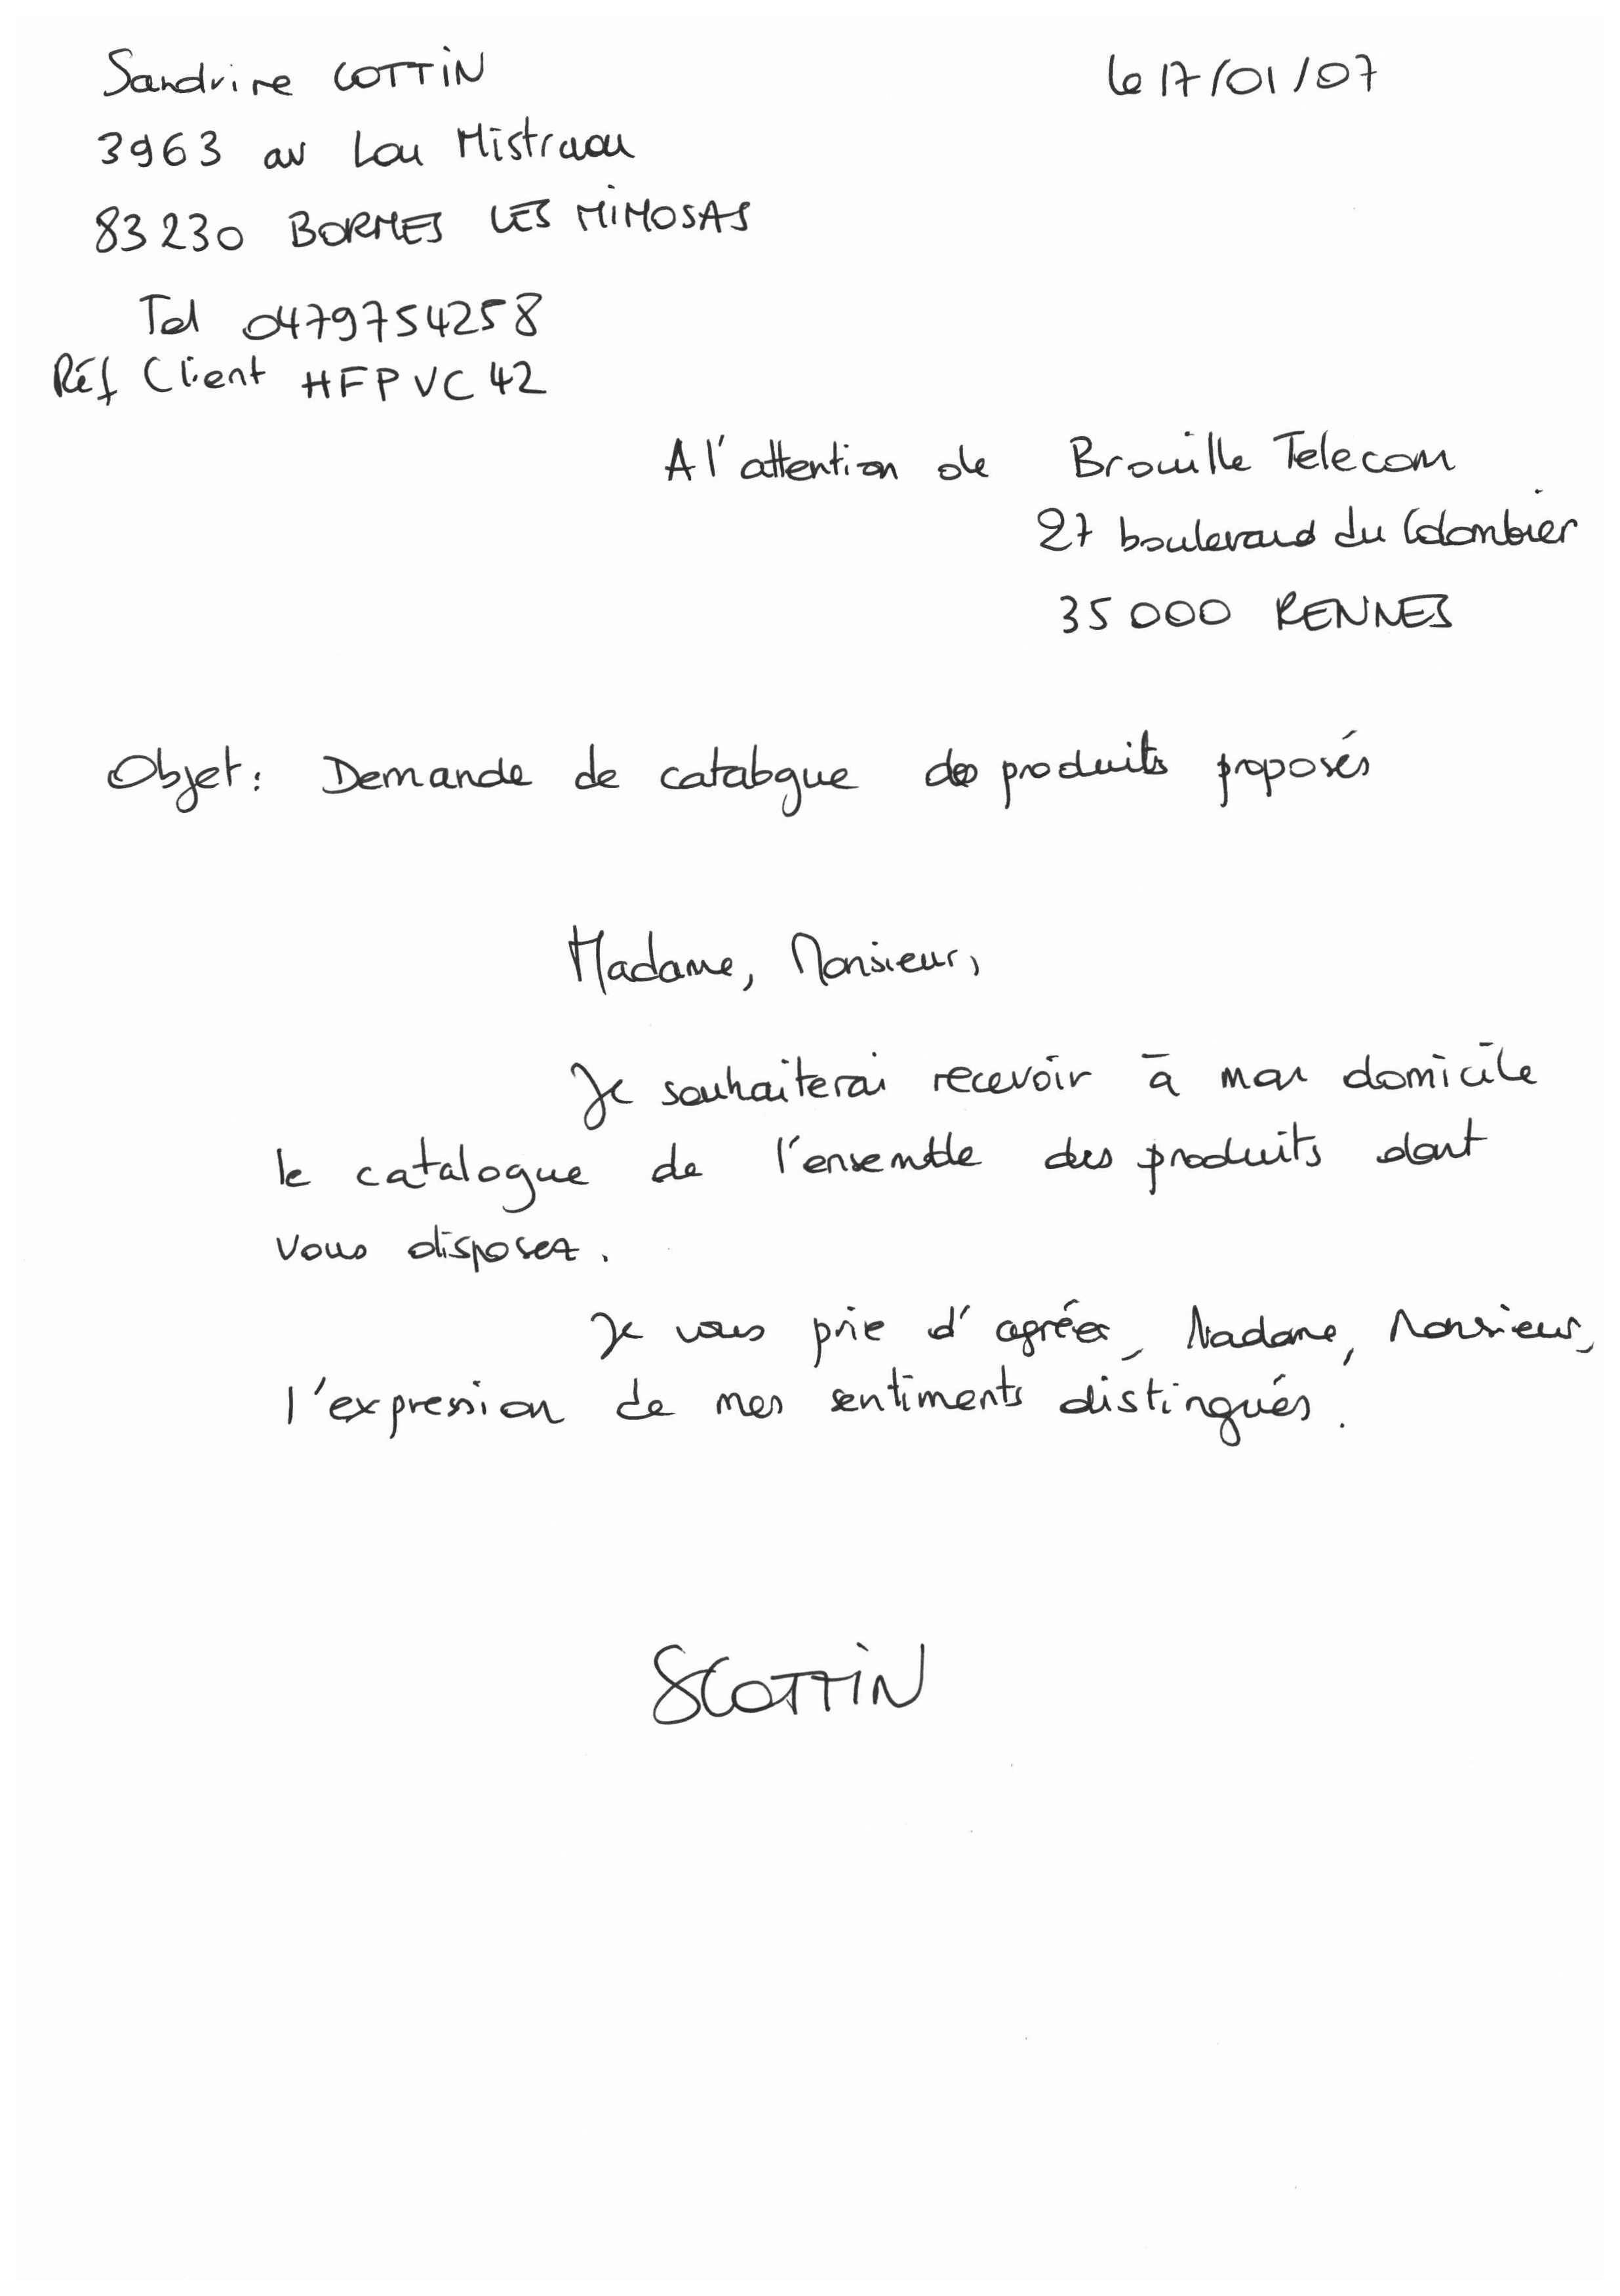 Sandrine COTTIN
le 17/01/07
3963 av Lou Mistraou
83230 BORMES LES MIMOSAS
Tel 0479754258
Réf Client HFPVC42
A l'attention de Brouille Telecom
27 boulevard du Colombier
35000 RENNES
Objet: Demande de catalogue des produits proposés
Madame, Monsieur,
Je souhaiterai recevoir à mon domicile
le catalogue de l'ensemble des produits dont
vous disposez.
Je vous prie d'agréer, Madame, Monsieur,
l'expression de mes sentiments distingués.
SCOTTIN